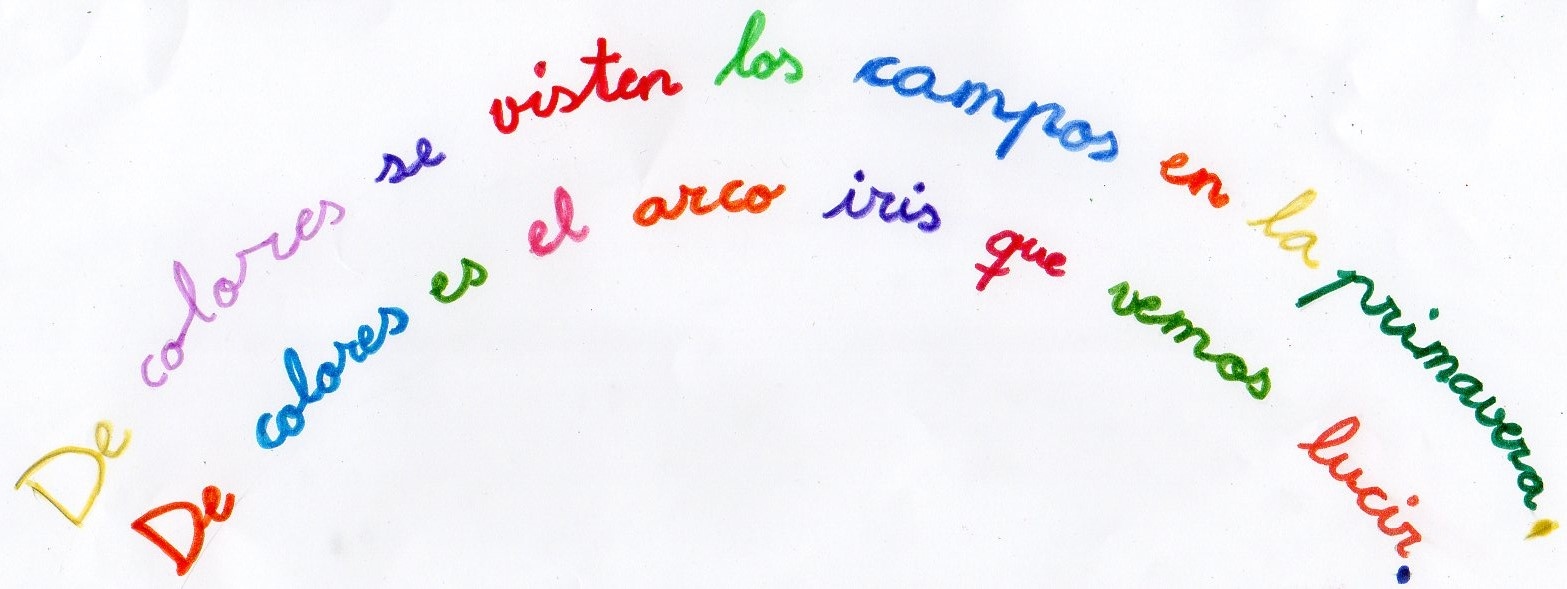 De colores se visten los campos en la primavera.
De colores es el arco iris que vemos lucir.